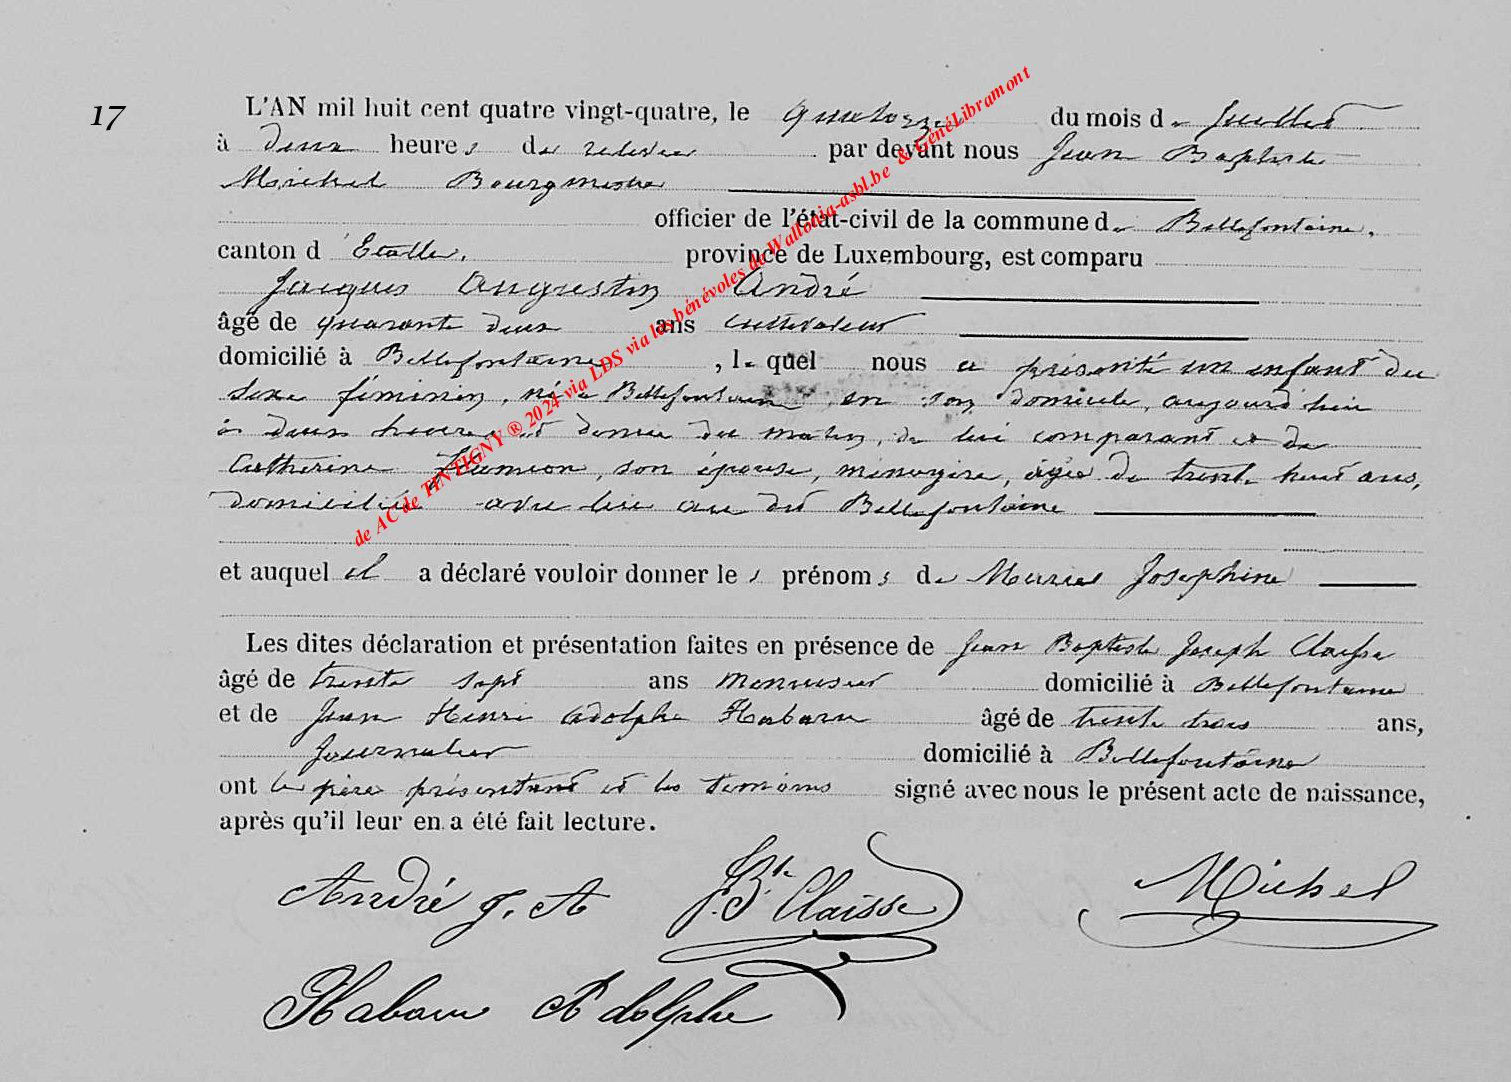 17
L'AN mil huit cent quatre vingt-quatre, le quatorze du mois de Juillet
à deux heures de relevée par devant nous Jean Baptiste
Michel Bourgmestre
officier de l'état-civil de la commune de Bellefontaine,
canton d'Etalle, province de Luxembourg, est comparu
Jacques Augustin André
âgé de quarante deux ans cultivateur
domicilié à Bellefontaine, lequel nous a présenté un enfant du
sexe féminin, né à Bellefontaine en son domicile, aujourd'hui
à deux heures et demie du matin, de lui comparant et de
Catherine son épouse, ménagère, âgée de trente huit ans,
domiciliée avec lui au dit Bellefontaine
et auquel il a déclaré vouloir donner les prénoms de Marie Joséphine
Les dites déclaration et présentation faites en présence de Jean Baptiste Joseph Claisse
âgé de trente sept ans menuisier domicilié à Bellefontaine
et de Jean Henri Adolphe Habaru âgé de trente trois ans,
Journalier domicilié à Bellefontaine
ont le père présentant et les témoins signé avec nous le présent acte de naissance,
après qu'il leur en a été fait lecture.
André J. A J. Bte Claisse Michel
Habaru Adolphe
de AC de TINTIGNY ® 2024 via LDS via les bénévoles de Wallonia-asbl.be & GénéLibramont